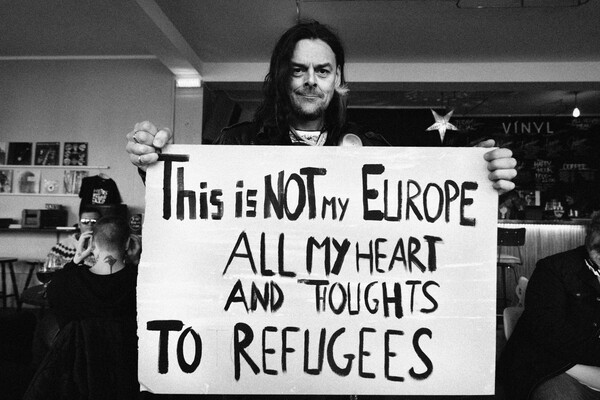 VINYL
COFFEE
This is NOT MY EUROPE
ALL MY HEART
AND THOUGHTS
TO REFUGEES